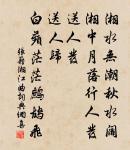 湘水無潮秋水闊
湘中月落行人發
送人發
送人歸
白蘋茫茫鷓鴣飛
張籍湘江曲